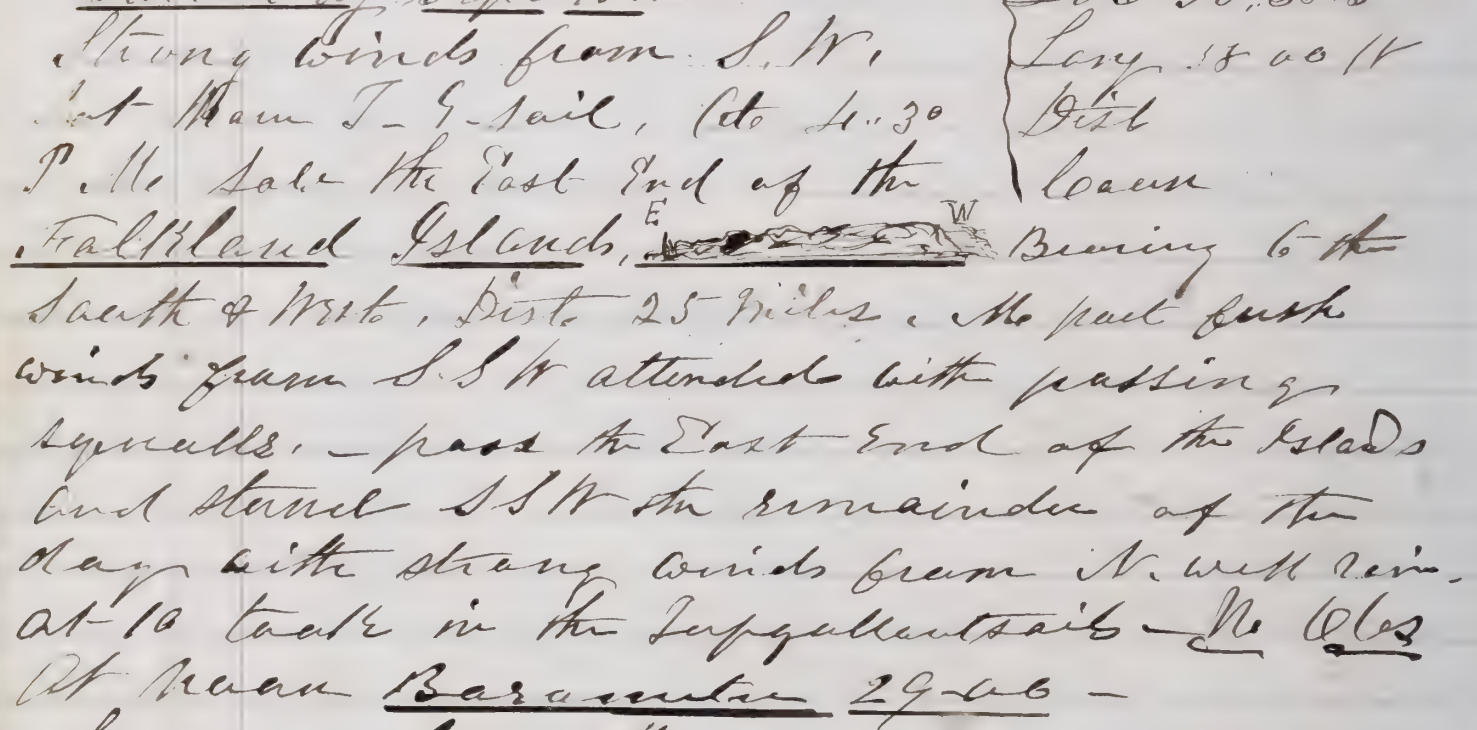 Strong winds from S. W.
Set Main T-G-sail, At 4.30
P. M. saw the East End of the
Falkland Islands, E W Bearing to the
South & West, Dist. 25 Miles. M. part fresh
winds from S. S W attended with passing
squalls. - pass the East End of the Islads
and steered S S W the remainder of the
day with strong winds from N. with rain.
at 10 took in the Topgallantsails - No Obs
At noon Barometer 29-00 -
Long 58 00 W
Dist
Cours